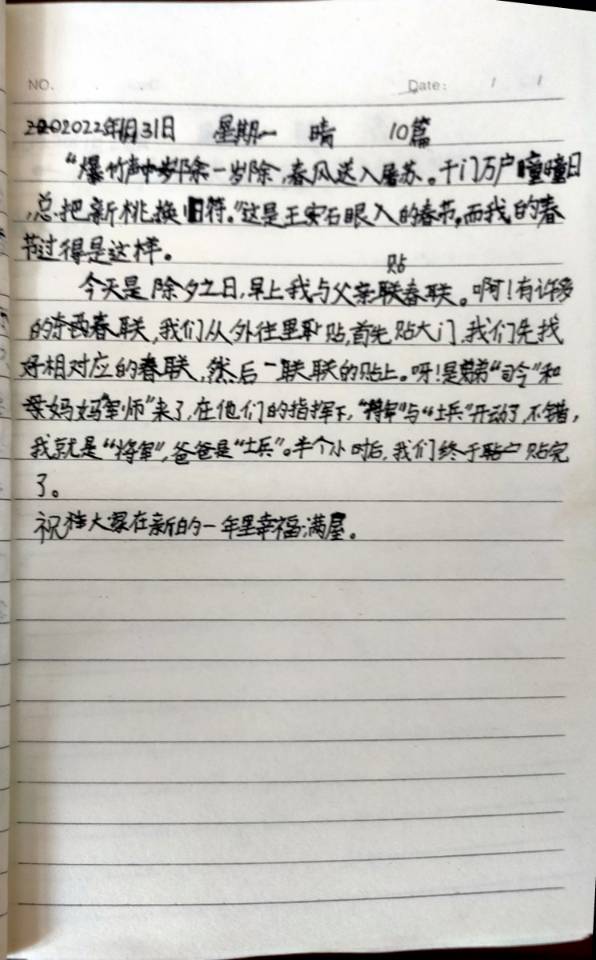 NO.
Date: / /
2022年1月31日 星期一 晴 10篇
“爆竹声中岁除一岁除,春风送入屠苏。千门万户瞳瞳日
,总把新桃换旧符。”这是王安石眼入的春节,而我的春
节过得是这样。
贴
今天是除夕之日,早上我与父亲联春联。啊!有许多
的东西春联,我们从外往里贴,首先贴大门,我们先找
好相对应的春联,然后一联联的贴上。呀!是弟“司令”和
妈妈“军师”来了,在他们的指挥下,“将军”与“士兵”开动了,不错,
我就是“将军”,爸爸是“士兵”。半个小时后,我们终于贴完
了。
祝大家在新的一年里幸福满屋。